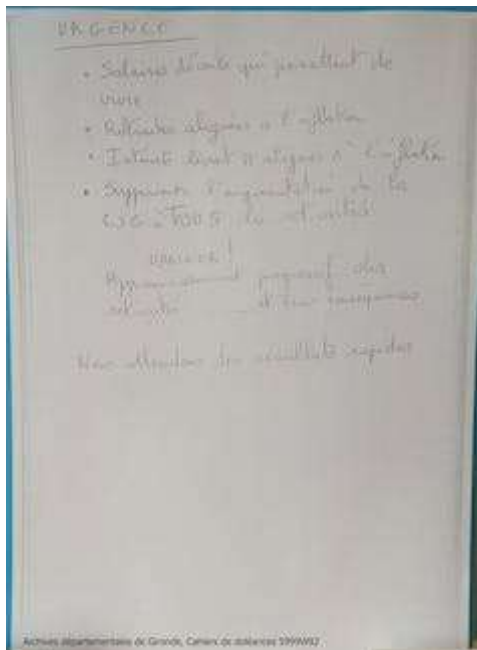 URGENCE
• Salaires décents qui permettent de
vivre
• Retraites alignées à l'inflation
• Intérêt livret A aligner à l'inflation
• Supprimer l'augmentation de la
CSG à TOUS les retraités
URGENCE !
Appauvrissement progressif des
retraités et
Nous attendons des résultats rapides
Archives départementales de Gironde, Cahiers de doléances 5999W92